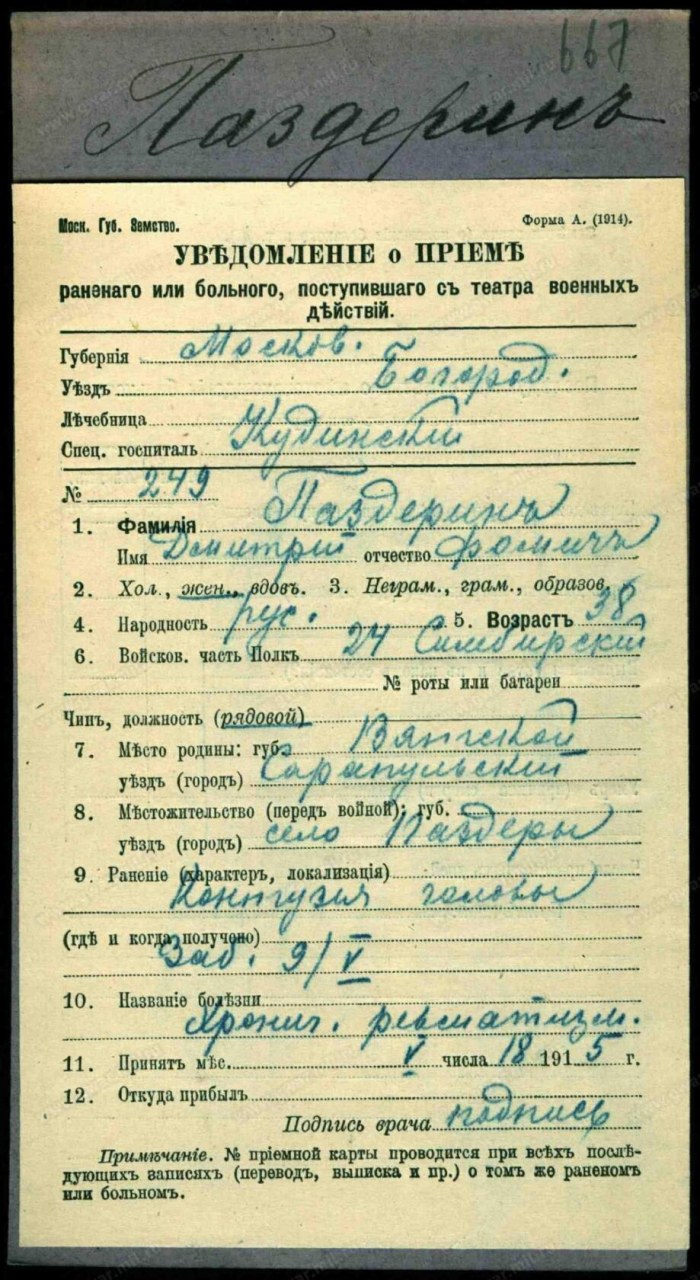 667
Паздеринъ
Моск. Губ. Земство.
Форма А. (1914).
УВѢДОМЛЕНІЕ о ПРІЕМѢ
раненаго или больного, поступившаго съ театра военныхъ
дѣйствій.
Губернія Москов.
Уѣздъ Богород.
Лѣчебница
Спец. госпиталь Кудинскій
№ 249
1. Фамилія Паздеринъ
Имя Дмитрій отчество Фомичъ
2. Хол., жен., вдов. 3. Неграм., грам., образов.
4. Народность рус. 5. Возрастъ 38
6. Войсков. часть Полкъ 24 Симбирскій
№ роты или батареи
Чинъ, должность (рядовой)
7. Мѣсто родины: губ. Вятской
уѣздъ (городъ) Сарапульскій
8. Мѣстожительство (передъ войной): губ.
уѣздъ (городъ) село Паздеры
9. Раненіе (характеръ, локализація)
Контузія головы
(гдѣ и когда получено)
Заб. 9/V
10. Названіе болѣзни
Хронич. ревматизм.
11. Принятъ мѣс. V числа 18 1915 г.
12. Откуда прибылъ
Подпись врача подпись
Примѣчаніе. № пріемной карты проводится при всѣхъ послѣ-
дующихъ записяхъ (переводъ, выписка и пр.) о томъ же раненомъ
или больномъ.